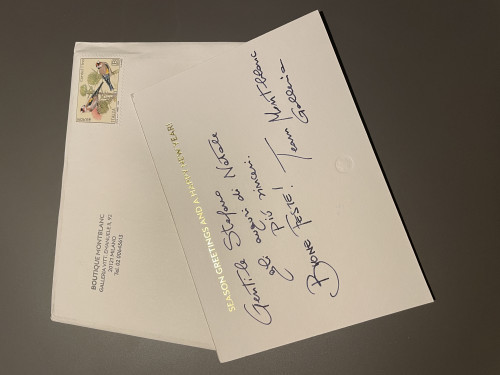 BOUTIQUE MONTBLANC
GALLERIA VITT. EMANUELE II, 92
20121 MILANO
SEASON GREETINGS AND A HAPPY NEW YEAR!
Gentile Stefano
gli auguri di Natale
più sinceri.
Buone feste! Team Montblanc
Galleria